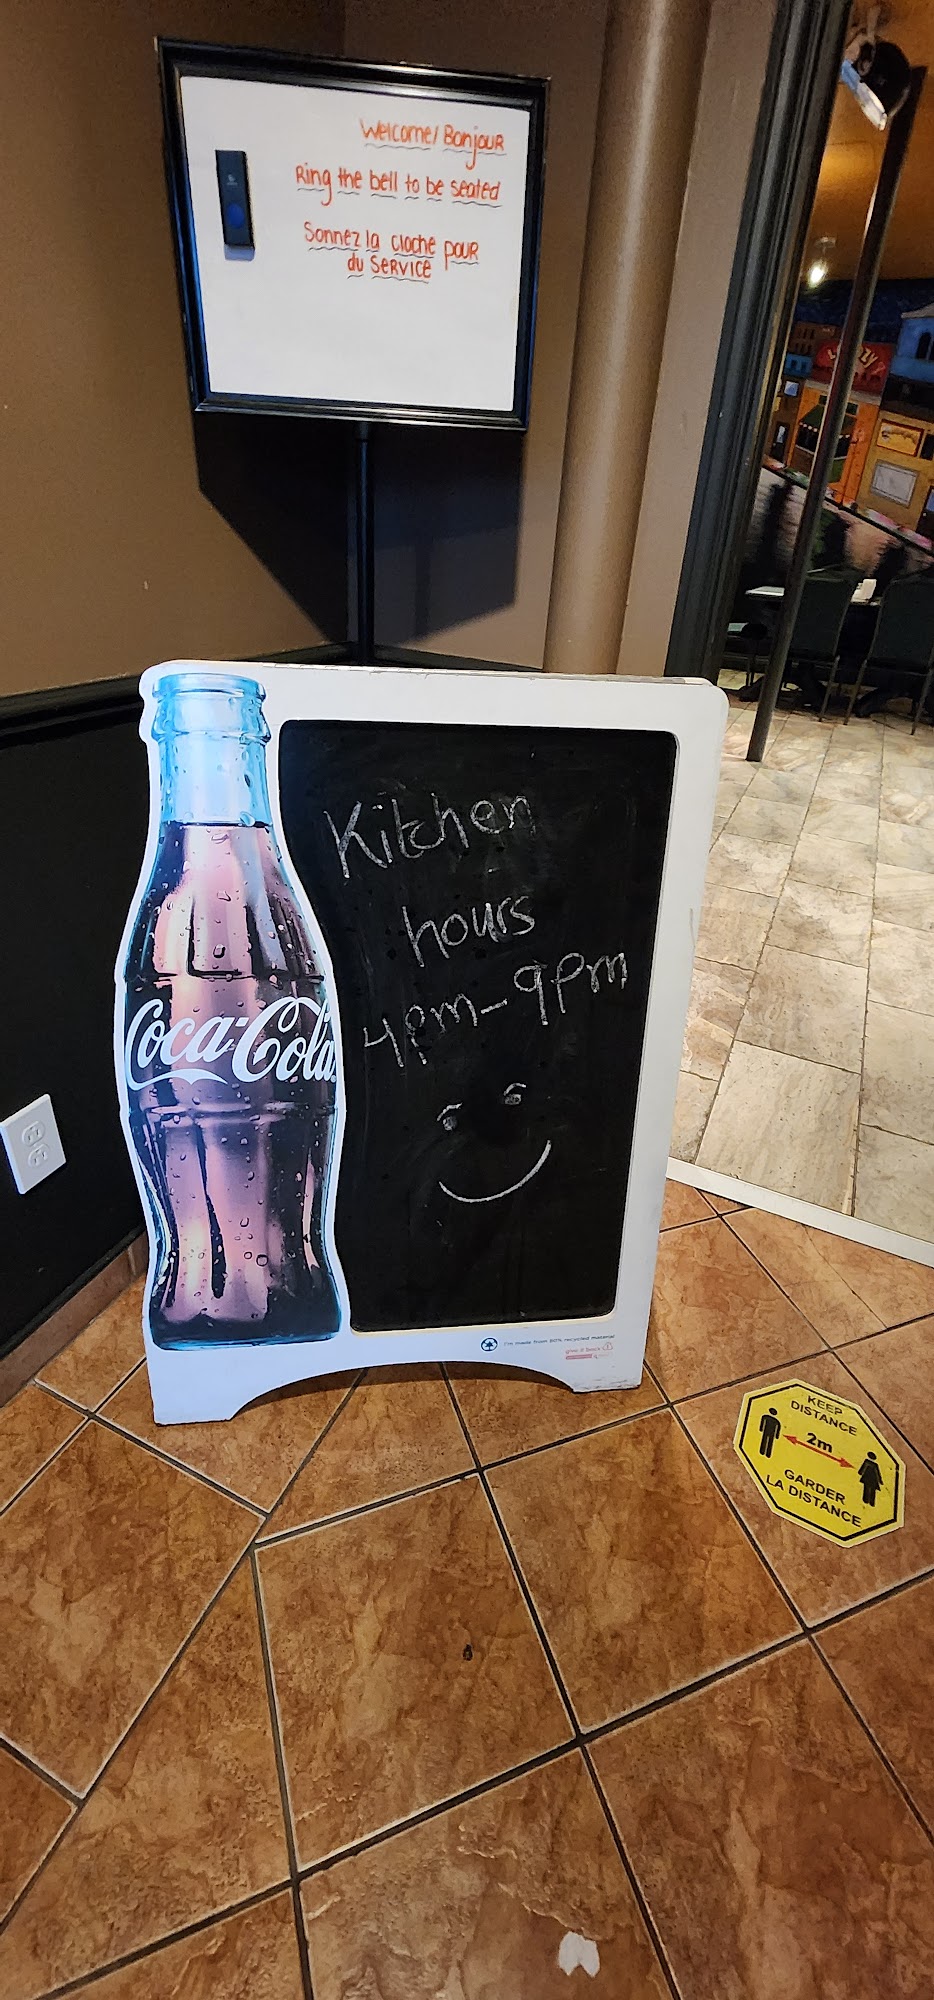 Welcome/Bonjour
Ring the bell to be seated
Sonnez la cloche pour
du Service
Kitchen
hours
4pm-9pm
Coca-Cola
I'm made from 80% recycled material
give it back
KEEP
DISTANCE
2m
GARDER
LA DISTANCE